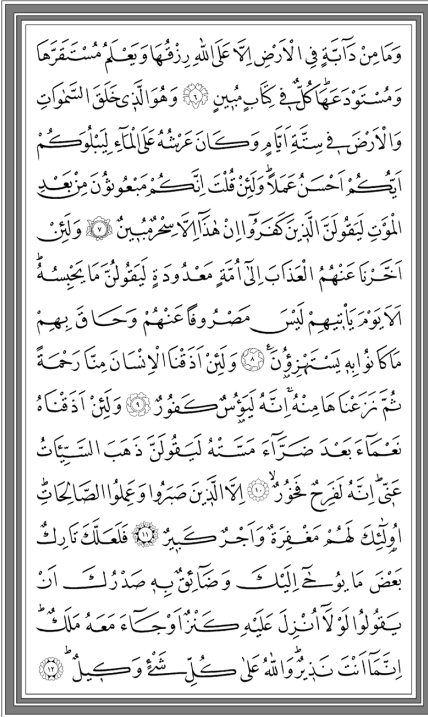 وَمَا مِنْ دَٓابَّةٍ فِي الْاَرْضِ اِلَّا عَلَى اللّٰهِ رِزْقُهَا وَيَعْلَمُ مُسْتَقَرَّهَا
وَمُسْتَوْدَعَهَاۜ كُلٌّ فٖي كِتَابٍ مُبٖينٍ ﴿٦﴾ وَهُوَ الَّذٖي خَلَقَ السَّمٰوَاتِ
وَالْاَرْضَ فٖي سِتَّةِ اَيَّامٍ وَكَانَ عَرْشُهُ عَلَى الْمَٓاءِ لِيَبْلُوَكُمْ
اَيُّكُمْ اَحْسَنُ عَمَلًاۜ وَلَئِنْ قُلْتَ اِنَّكُمْ مَبْعُوثُونَ مِنْ بَعْدِ
الْمَوْتِ لَيَقُولَنَّ الَّذٖينَ كَفَرُٓوا اِنْ هٰذَٓا اِلَّا سِحْرٌ مُبٖينٌ ﴿٧﴾ وَلَئِنْ
اَخَّرْنَا عَنْهُمُ الْعَذَابَ اِلٰٓى اُمَّةٍ مَعْدُودَةٍ لَيَقُولُنَّ مَا يَحْبِسُهُۜ
اَلَا يَوْمَ يَأْتٖيهِمْ لَيْسَ مَصْرُوفًا عَنْهُمْ وَحَاقَ بِهِمْ
مَا كَانُوا بِهٖ يَسْتَهْزِؤُ۫نَ ﴿٨﴾ وَلَئِنْ اَذَقْنَا الْاِنْسَانَ مِنَّا رَحْمَةً
ثُمَّ نَزَعْنَاهَا مِنْهُۚ اِنَّهُ لَيَؤُ۫سٌ كَفُورٌ ﴿٩﴾ وَلَئِنْ اَذَقْنَاهُ
نَعْمَٓاءَ بَعْدَ ضَرَّٓاءَ مَسَّتْهُ لَيَقُولَنَّ ذَهَبَ السَّيِّـَٔاتُ
عَنّٖيۜ اِنَّهُ لَفَرِحٌ فَخُورٌۙ ﴿١٠﴾ اِلَّا الَّذٖينَ صَبَرُوا وَعَمِلُوا الصَّالِحَاتِۜ
اُو۬لٰٓئِكَ لَهُمْ مَغْفِرَةٌ وَاَجْرٌ كَبٖيرٌ ﴿١١﴾ فَلَعَلَّكَ تَارِكٌ
بَعْضَ مَا يُوحٰٓى اِلَيْكَ وَضَٓائِقٌ بِهٖ صَدْرُكَ اَنْ
يَقُولُوا لَوْلَٓا اُنْزِلَ عَلَيْهِ كَنْزٌ اَوْ جَٓاءَ مَعَهُ مَلَكٌۜ
اِنَّمَٓا اَنْتَ نَذٖيرٌۜ وَاللّٰهُ عَلٰى كُلِّ شَيْءٍ وَكٖيلٌۜ ﴿١٢﴾